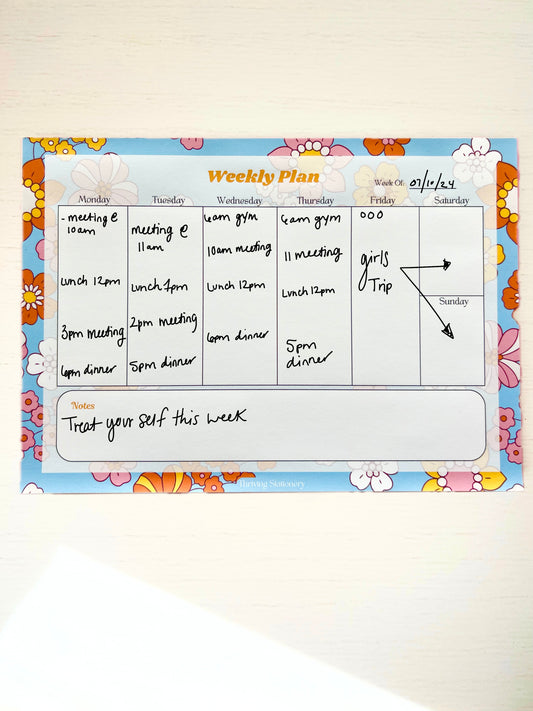 Weekly Plan
Week Of: 07/10/24
Monday
- meeting @
10am
lunch 12pm
3pm meeting
6pm dinner
Tuesday
meeting @
11am
lunch 1pm
2pm meeting
5pm dinner
Wednesday
6am gym
10am meeting
lunch 12pm
6pm dinner
Thursday
6am gym
11 meeting
lunch 12pm
5pm
dinner
Friday
OOO
girls
Trip
Saturday
Sunday
Notes
Treat your self this week
Thriving Stationery